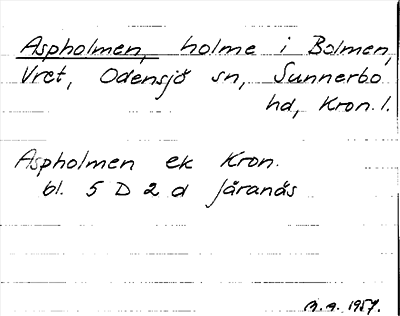 Aspholmen, holme i Bolmen,
Vret, Odensjö sn, Sunnerbo
hd, Kron. l.
Aspholmen ek Kron.
bl. 5 D 2 d Järanäs
1957.